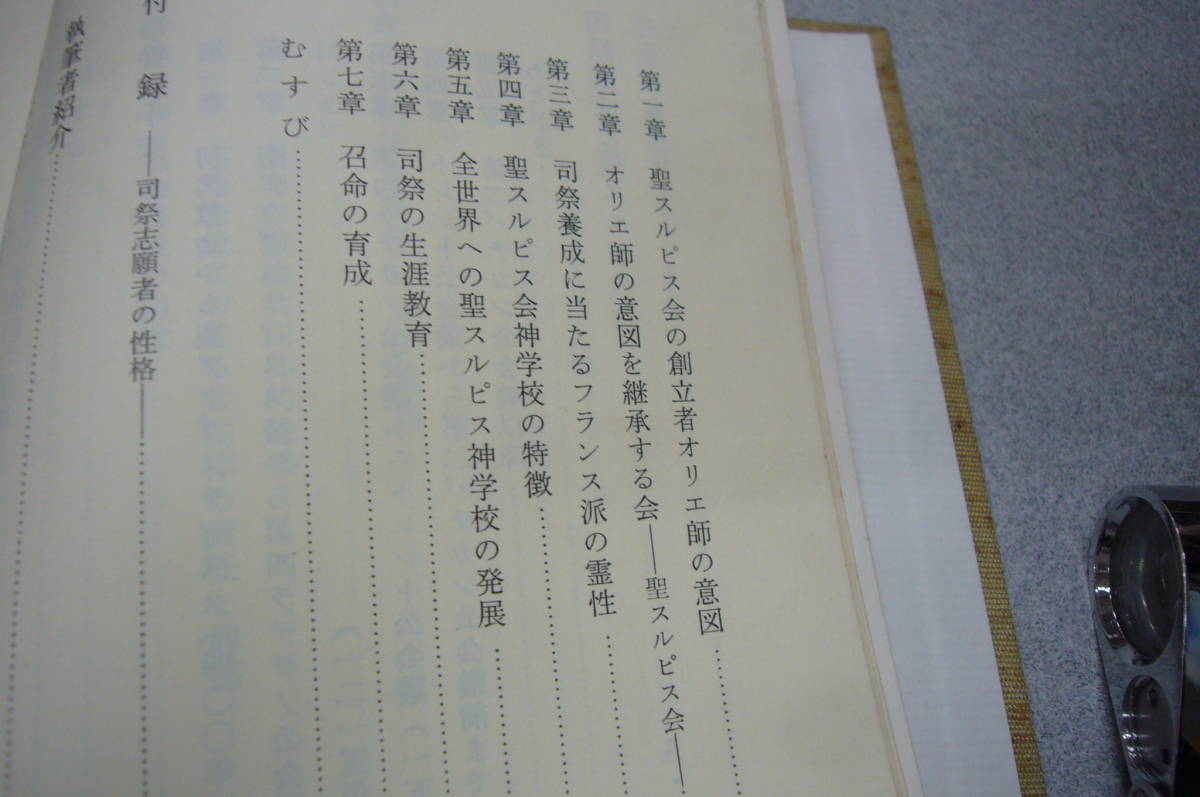 第一章 聖スルピス会の創立者オリエ師の意図
第二章 オリエ師の意図を継承する会――聖スルピス会――
第三章 司祭養成に当たるフランス派の霊性
第四章 聖スルピス会神学校の特徴
第五章 全世界への聖スルピス神学校の発展
第六章 司祭の生涯教育
第七章 召命の育成
むすび
付録 ――司祭志願者の性格――
執筆者紹介